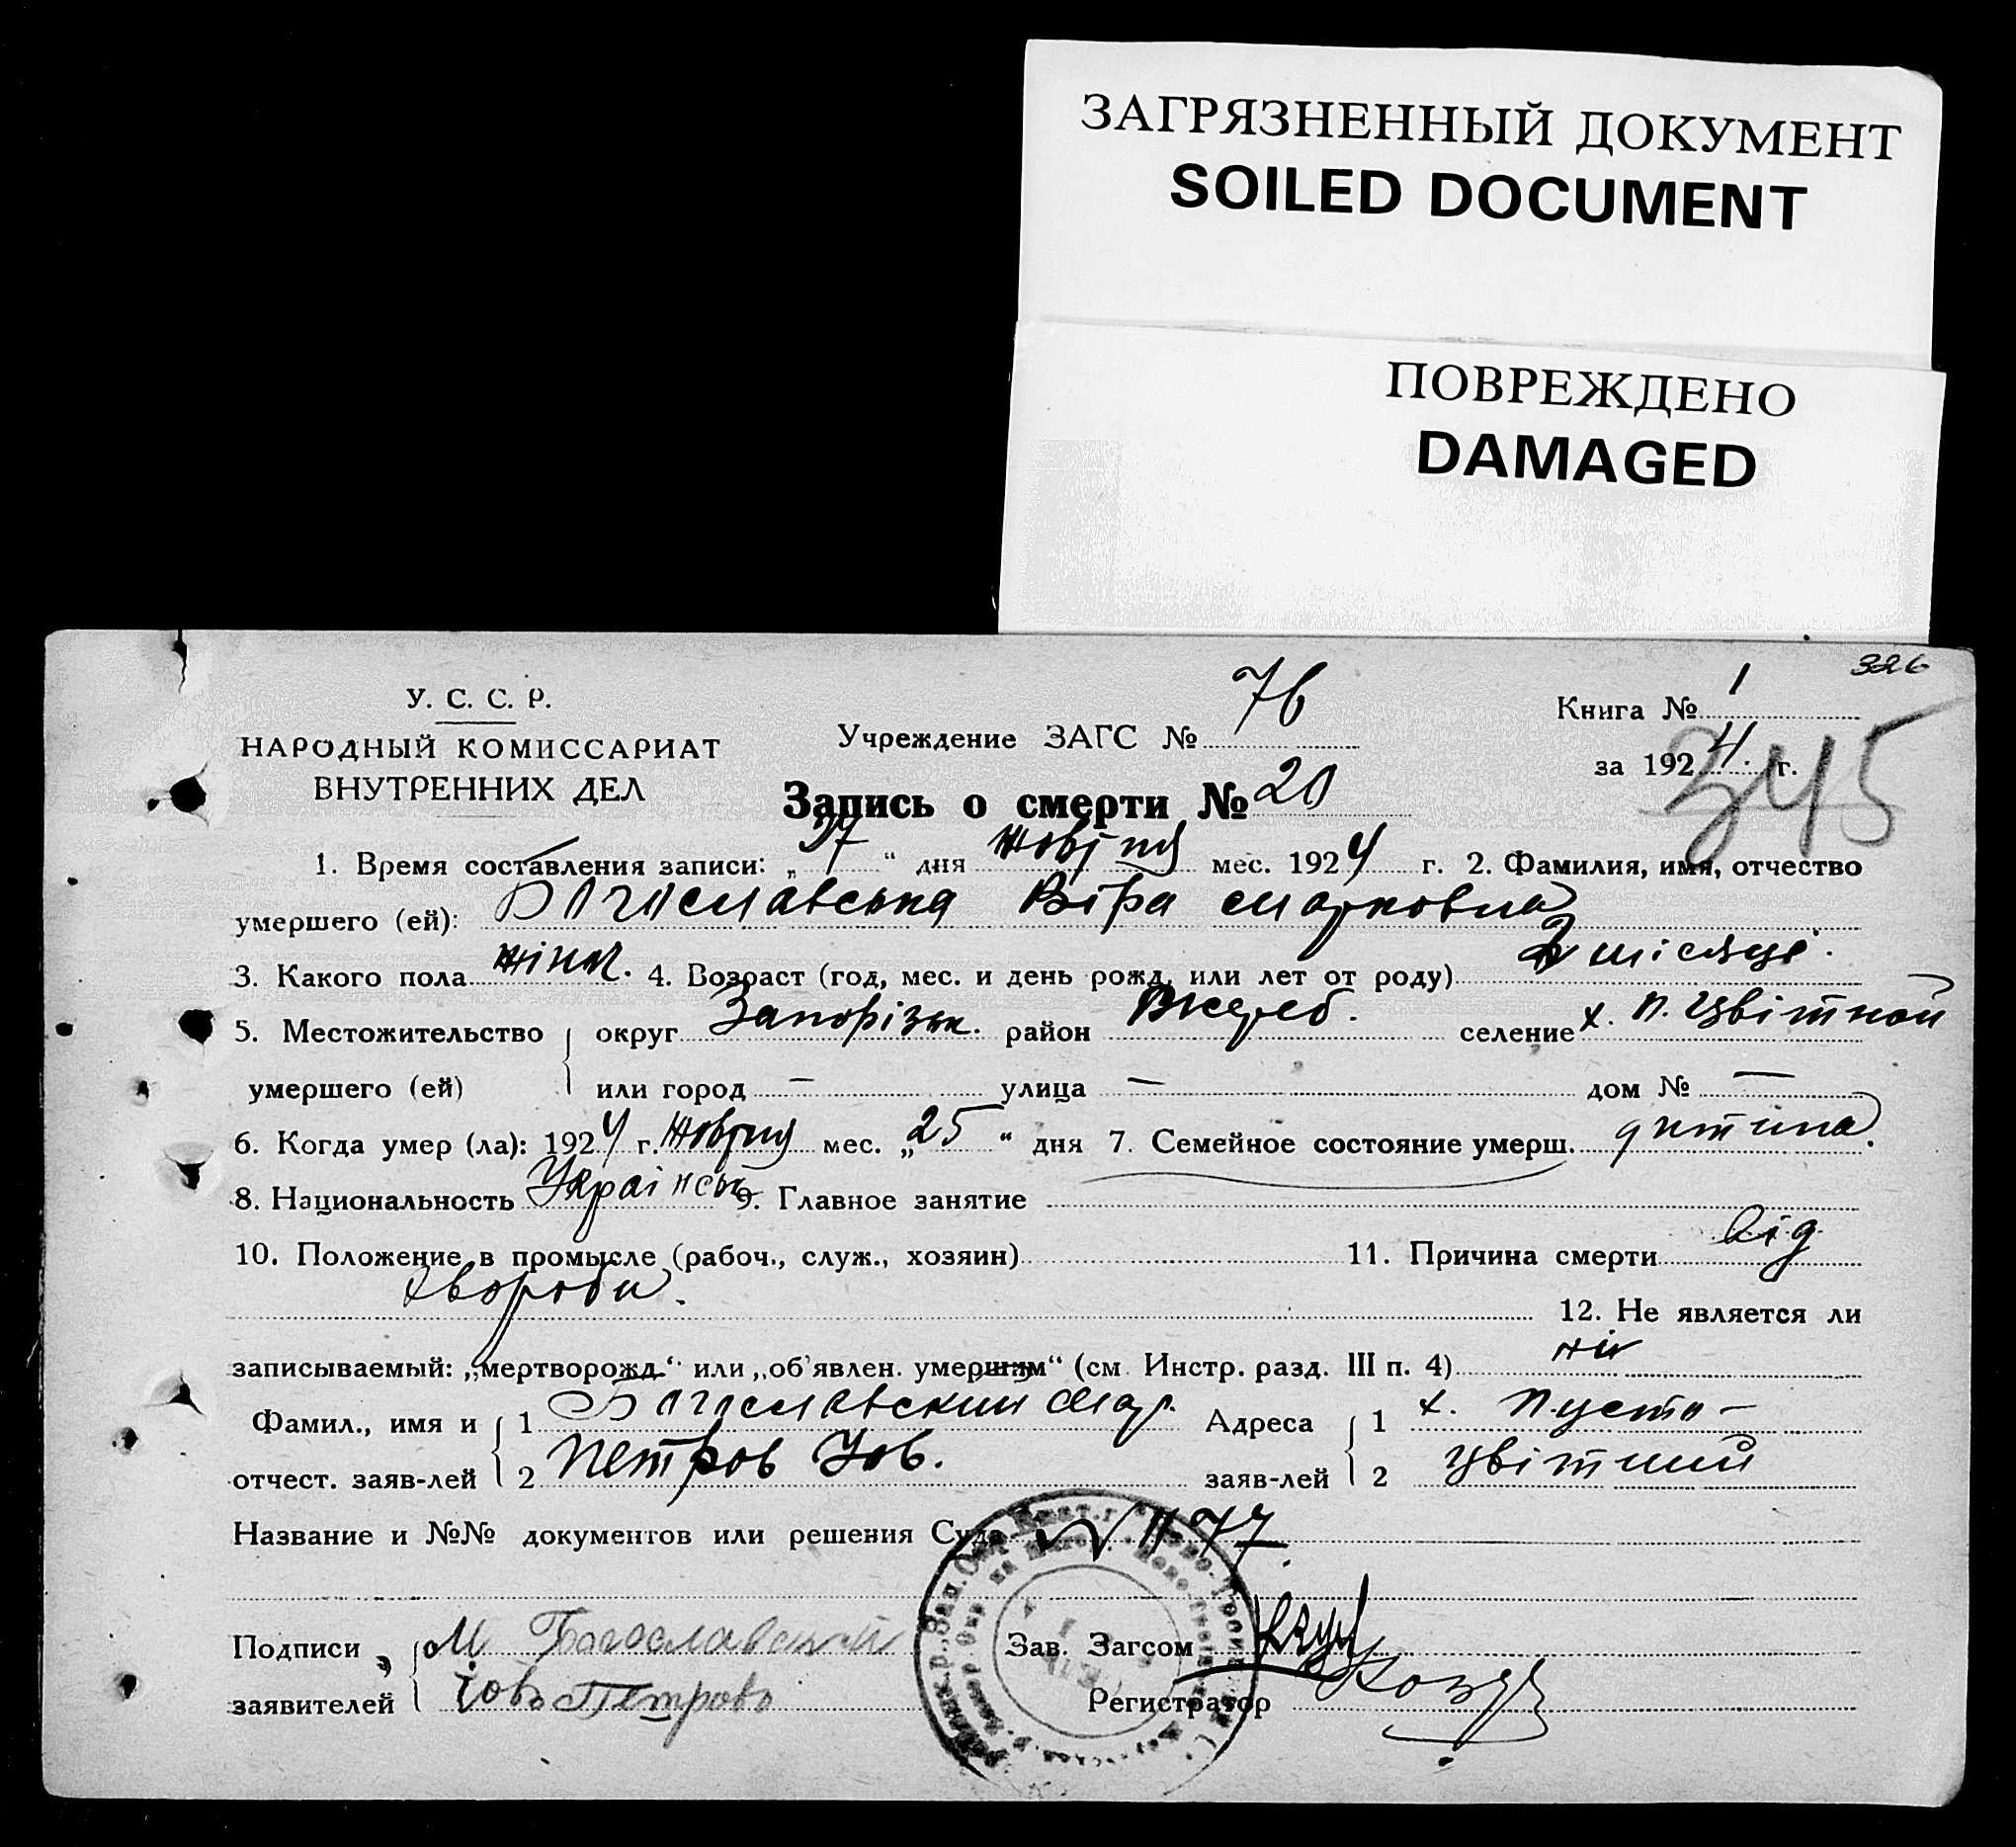 ЗАГРЯЗНЕННЫЙ ДОКУМЕНТ
SOILED DOCUMENT
ПОВРЕЖДЕНО
DAMAGED
326
У. С. С. Р.
НАРОДНЫЙ КОМИССАРИАТ
ВНУТРЕННИХ ДЕЛ
Учреждение ЗАГС № 76
Книга № 1
за 1924 г.
345
Запись о смерти № 20
1. Время составления записи: „27“ дня Жовтня мес. 1924 г. 2. Фамилия, имя, отчество
умершего (ей): Богославська Віра Марковна
3. Какого пола жіноч. 4. Возраст (год, мес. и день рожд. или лет от роду) 2 місяці.
5. Местожительство округ Запорізьк. район Жереб. селение х. П. Цвітной
умершего (ей) или город — улица — дом № —
6. Когда умер (ла): 1924 г. Жовтня мес. „25“ дня 7. Семейное состояние умерш. дитина.
8. Национальность Українськ 9. Главное занятие
10. Положение в промысле (рабоч., служ., хозяин) 11. Причина смерти від
хвороби.
12. Не является ли
записываемый: „мертворожд.“ или „об'явлен. умершим“ (см. Инстр. разд. III п. 4) ні
Фамил., имя и 1 Богославский Мар. Адреса 1 х. Пусто-
отчест. заяв-лей 2 Петров Иов. заяв-лей 2 Цвітний
Название и №№ документов или решения Суда № 1177.
Подписи М Богославский Зав. Загсом
заявителей Іовъ Петровъ Регистратор